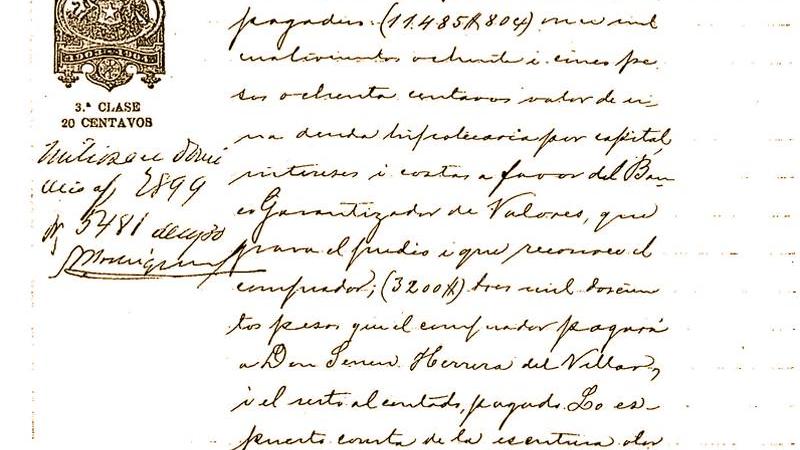 1903-1904
3.ª CLASE
20 CENTAVOS
2899
Nº 5481
pagados: (11.485$ 80¢) once mil
cuatrocientos ochenta i cinco pe-
sos ochenta centavos valor de u-
na deuda hipotecaria por capital,
intereses i costas a favor del Ban-
co Garantizador de Valores, que
grava el predio i que reconoce el
comprador; (3200$) tres mil doscien
tos pesos que el comprador pagará
a Don Senen Herrera del Villar,
i el resto al contado, pagado. Lo es-
puesto consta de la escritura otor